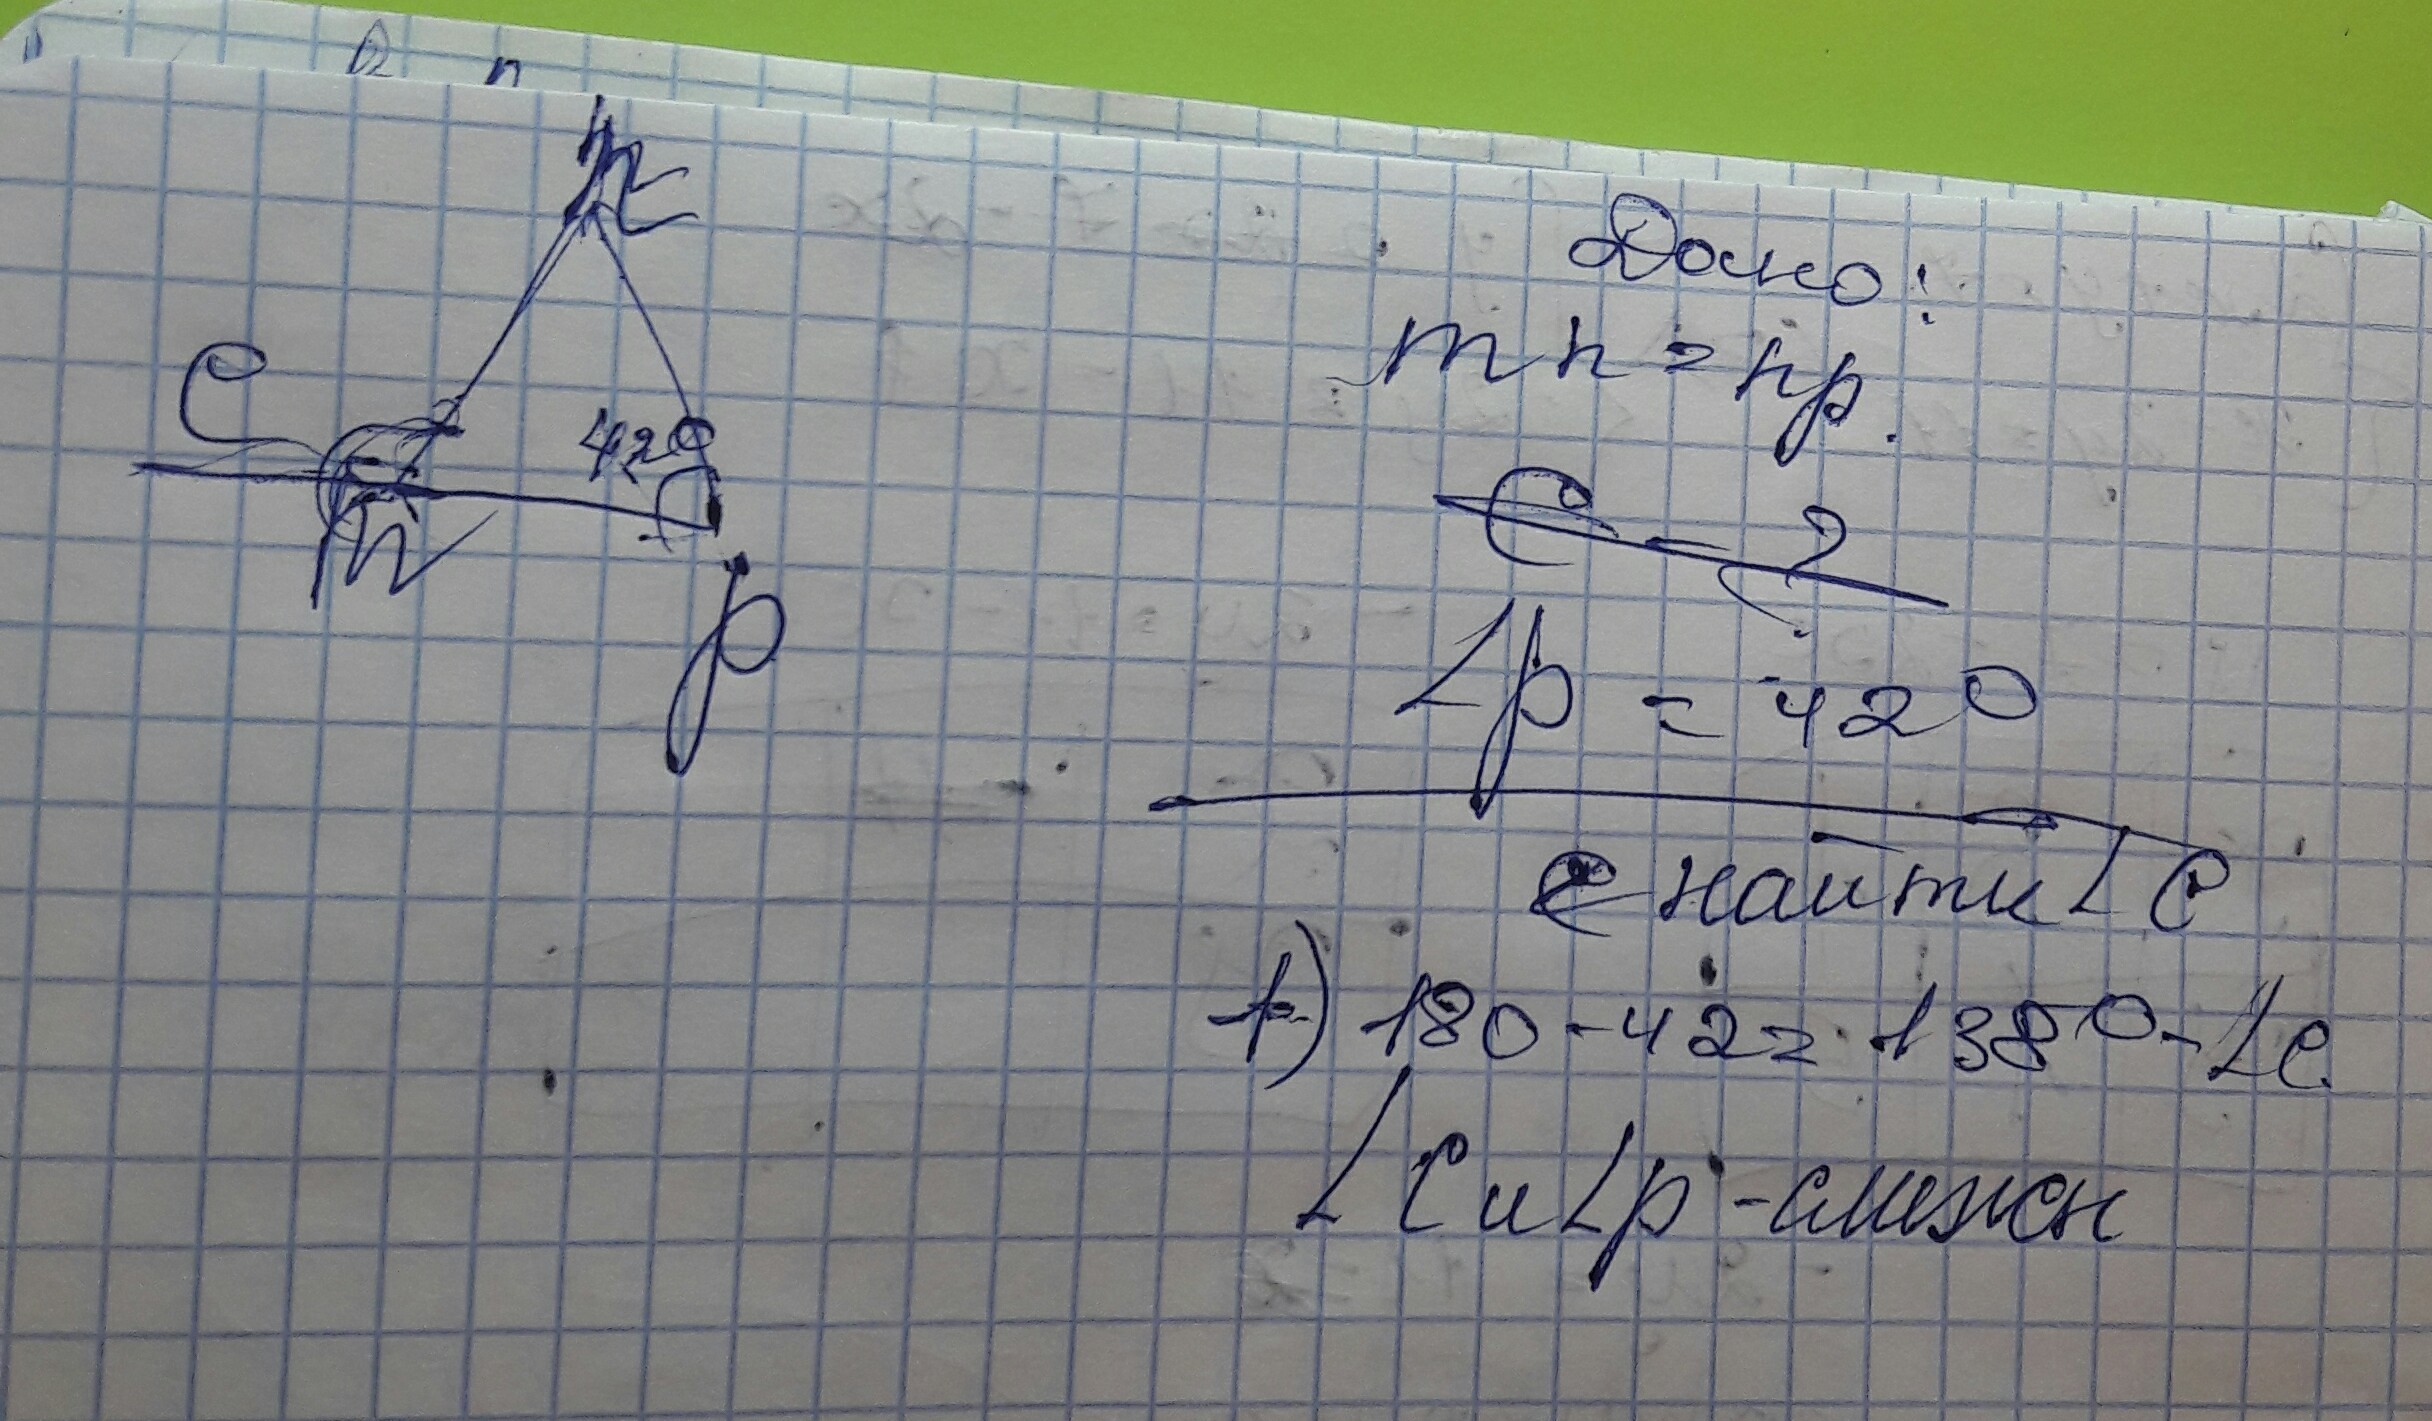 n
C
42°
m
p
Дано:
mn = np.
C - ?
∠p = 42°
найти ∠C
1) 180-42=138°-∠C.
∠C и ∠p -смежн